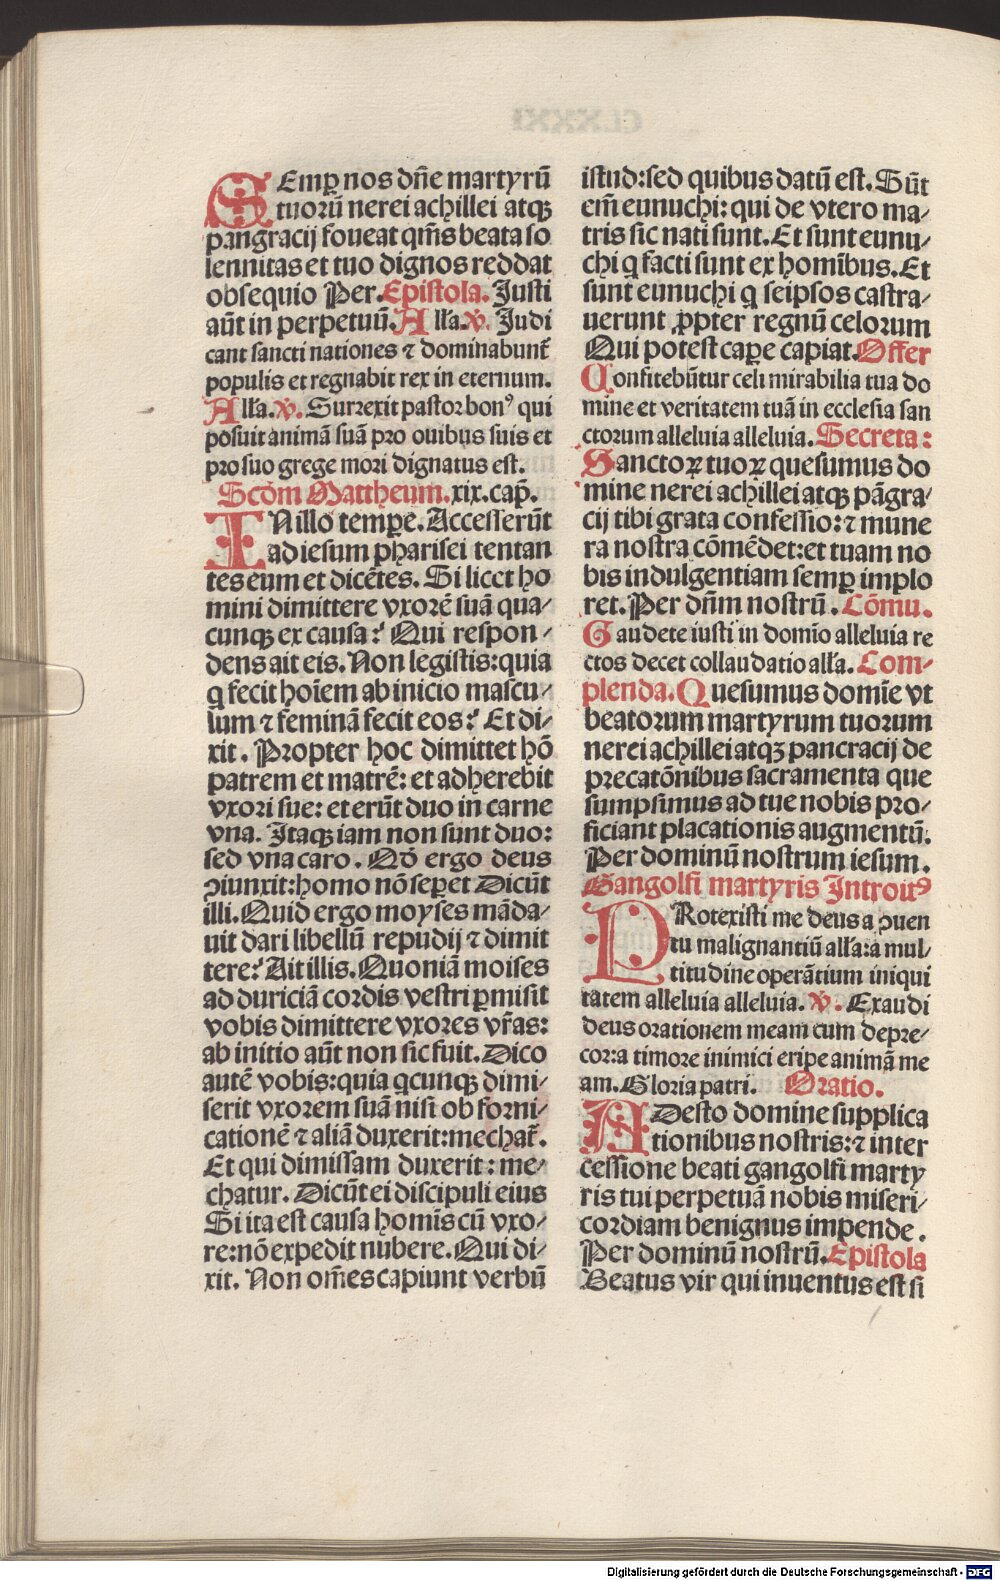 SEmꝑ nos dn̄e martyrū
tuorū nerei achillei atqꝫ
pangracij foueat qm̄s beata so
lennitas et tuo dignos reddat
obsequio Per. Epistola. Justi
aūt in perpetuū. Alľa. ꝟ. Judi
cant sancti nationes ⁊ dominabunt᷑
populis et regnabit rex in eternum.
Alľa. ꝟ. Surrexit pastor bonꝰ qui
posuit animā suā pro ouibus suis et
pro suo grege mori dignatus est.
Scōm Mattheum. xix. cap̄.
IN illo temꝑe. Accesserūt
ad iesum pharisei tentan
tes eum et dicētes. Si licet ho
mini dimittere vxorē suā qua⸗
cunqꝫ ex causa? Qui respon⸗
dens ait eis. Non legistis: quia
q̇ fecit hoīem ab inicio mascu⸗
lum ⁊ feminā fecit eos? Et di⸗
xit. Propter hoc dimittet hō
patrem et matrē: et adherebit
vxori sue: et erūt duo in carne
vna. Itaqꝫ iam non sunt duo:
sed vna caro. Qō ergo deus
ꝯiunxit: homo nō seꝑet Dicūt
illi. Quid ergo moyses māda⸗
uit dari libellū repudij ⁊ dimit
tere? Ait illis. Quoniā moises
ad duriciā cordis vestri ꝑmisit
vobis dimittere vxores vr̄as:
ab initio aūt non sic fuit. Dico
autē vobis: quia q̇cunqꝫ dimi⸗
serit vxorem suā nisi ob forni⸗
cationē ⁊ aliā duxerit: mechat᷑.
Et qui dimissam duxerit: me⸗
chatur. Dicūt ei discipuli eius
Si ita est causa homīs cū vxo⸗
re: nō expedit nubere. Qui di⸗
xit. Non om̄es capiunt verbū
istud: sed quibus datū est. Sūt
em̄ eunuchi: qui de vtero ma⸗
tris sic nati sunt. Et sunt eunu⸗
chi q̇ facti sunt ex homībus. Et
sunt eunuchi q̇ seipsos castra⸗
uerunt ꝓpter regnū celorum
Qui potest caꝑe capiat. Offer
Confitebūtur celi mirabilia tua do
mine et veritatem tuā in ecclesia san
ctorum alleluia alleluia. Secreta:
Sanctoꝝ tuoꝝ quesumus do
mine nerei achillei atqꝫ pāgra⸗
cij tibi grata confessio: ⁊ mune
ra nostra cōmēdet: et tuam no
bis indulgentiam semꝑ implo
ret. Per dn̄m nostrū. Cōmu.
Gaudete iusti in domīo alleluia re
ctos decet collaudatio alľa. Com⸗
plenda. Quesumus domīe vt
beatorum martyrum tuorum
nerei achillei atqꝫ pancracij de
precatōnibus sacramenta que
sumpsimus ad tue nobis pro⸗
ficiant placationis augmentū.
Per dominū nostrum iesum.
Gangolfi martyris Introitꝰ
PRotexisti me deus a ꝯuen
tu malignantiū alľa: a mul⸗
titudine operātium iniqui
tatem alleluia alleluia. ꝟ. Exaudi
deus orationem meam cum depre⸗
cor: a timore inimici eripe animā me
am. Gloria patri. Oratio.
ADesto domine supplica
tionibus nostris: ⁊ inter
cessione beati gangolfi marty
ris tui perpetuā nobis miseri⸗
cordiam benignus impende.
Per dominū nostrū. Epistola
Beatus vir qui inuentus est si
Digitalisierung gefördert durch die Deutsche Forschungsgemeinschaft - DFG